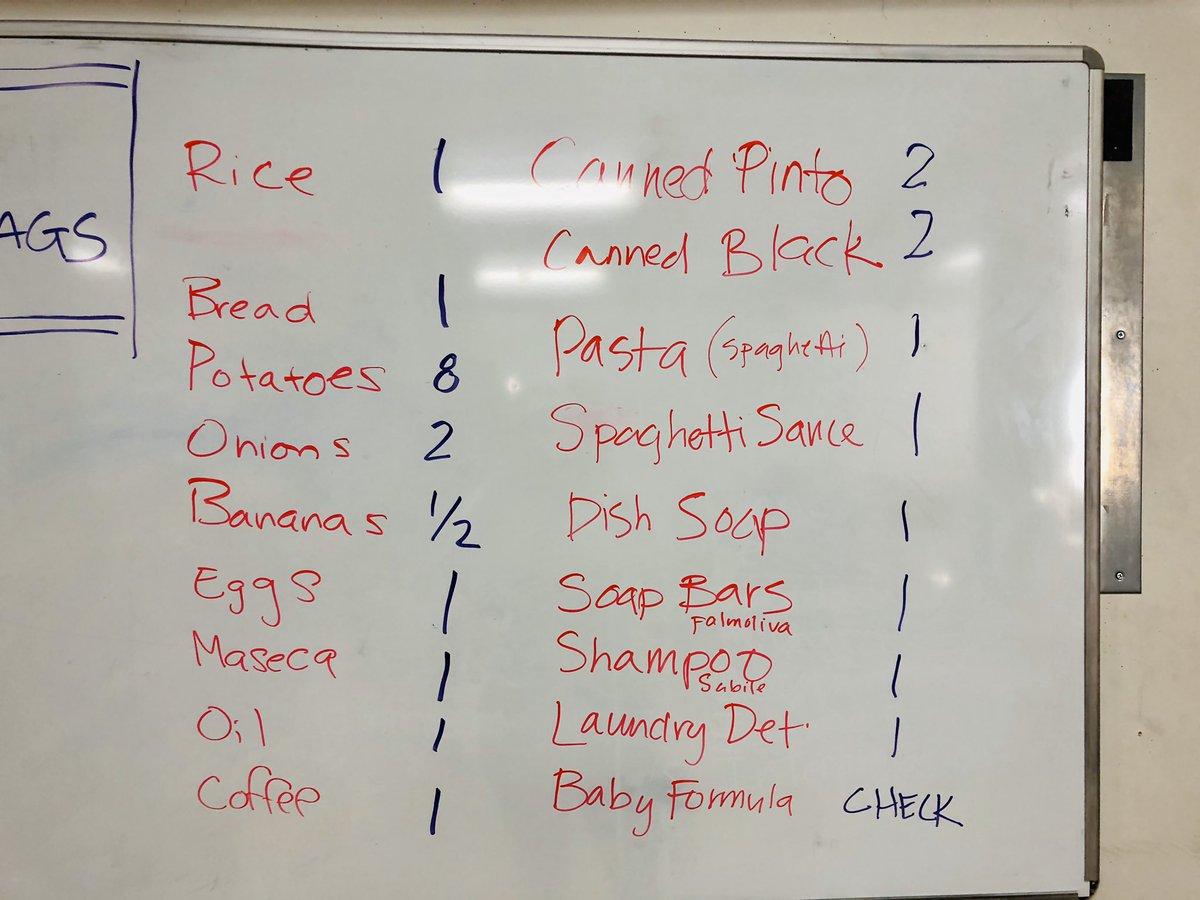 AGS
Rice 1
Bread 1
Potatoes 8
Onions 2
Bananas 1/2
Eggs 1
Maseca 1
Oil 1
Coffee 1
Canned Pinto 2
Canned Black 2
Pasta (Spaghetti) 1
Spaghetti Sauce 1
Dish Soap 1
Soap Bars 1
Palmoliva
Shampoo 1
Sabile
Laundry Det. 1
Baby Formula CHECK